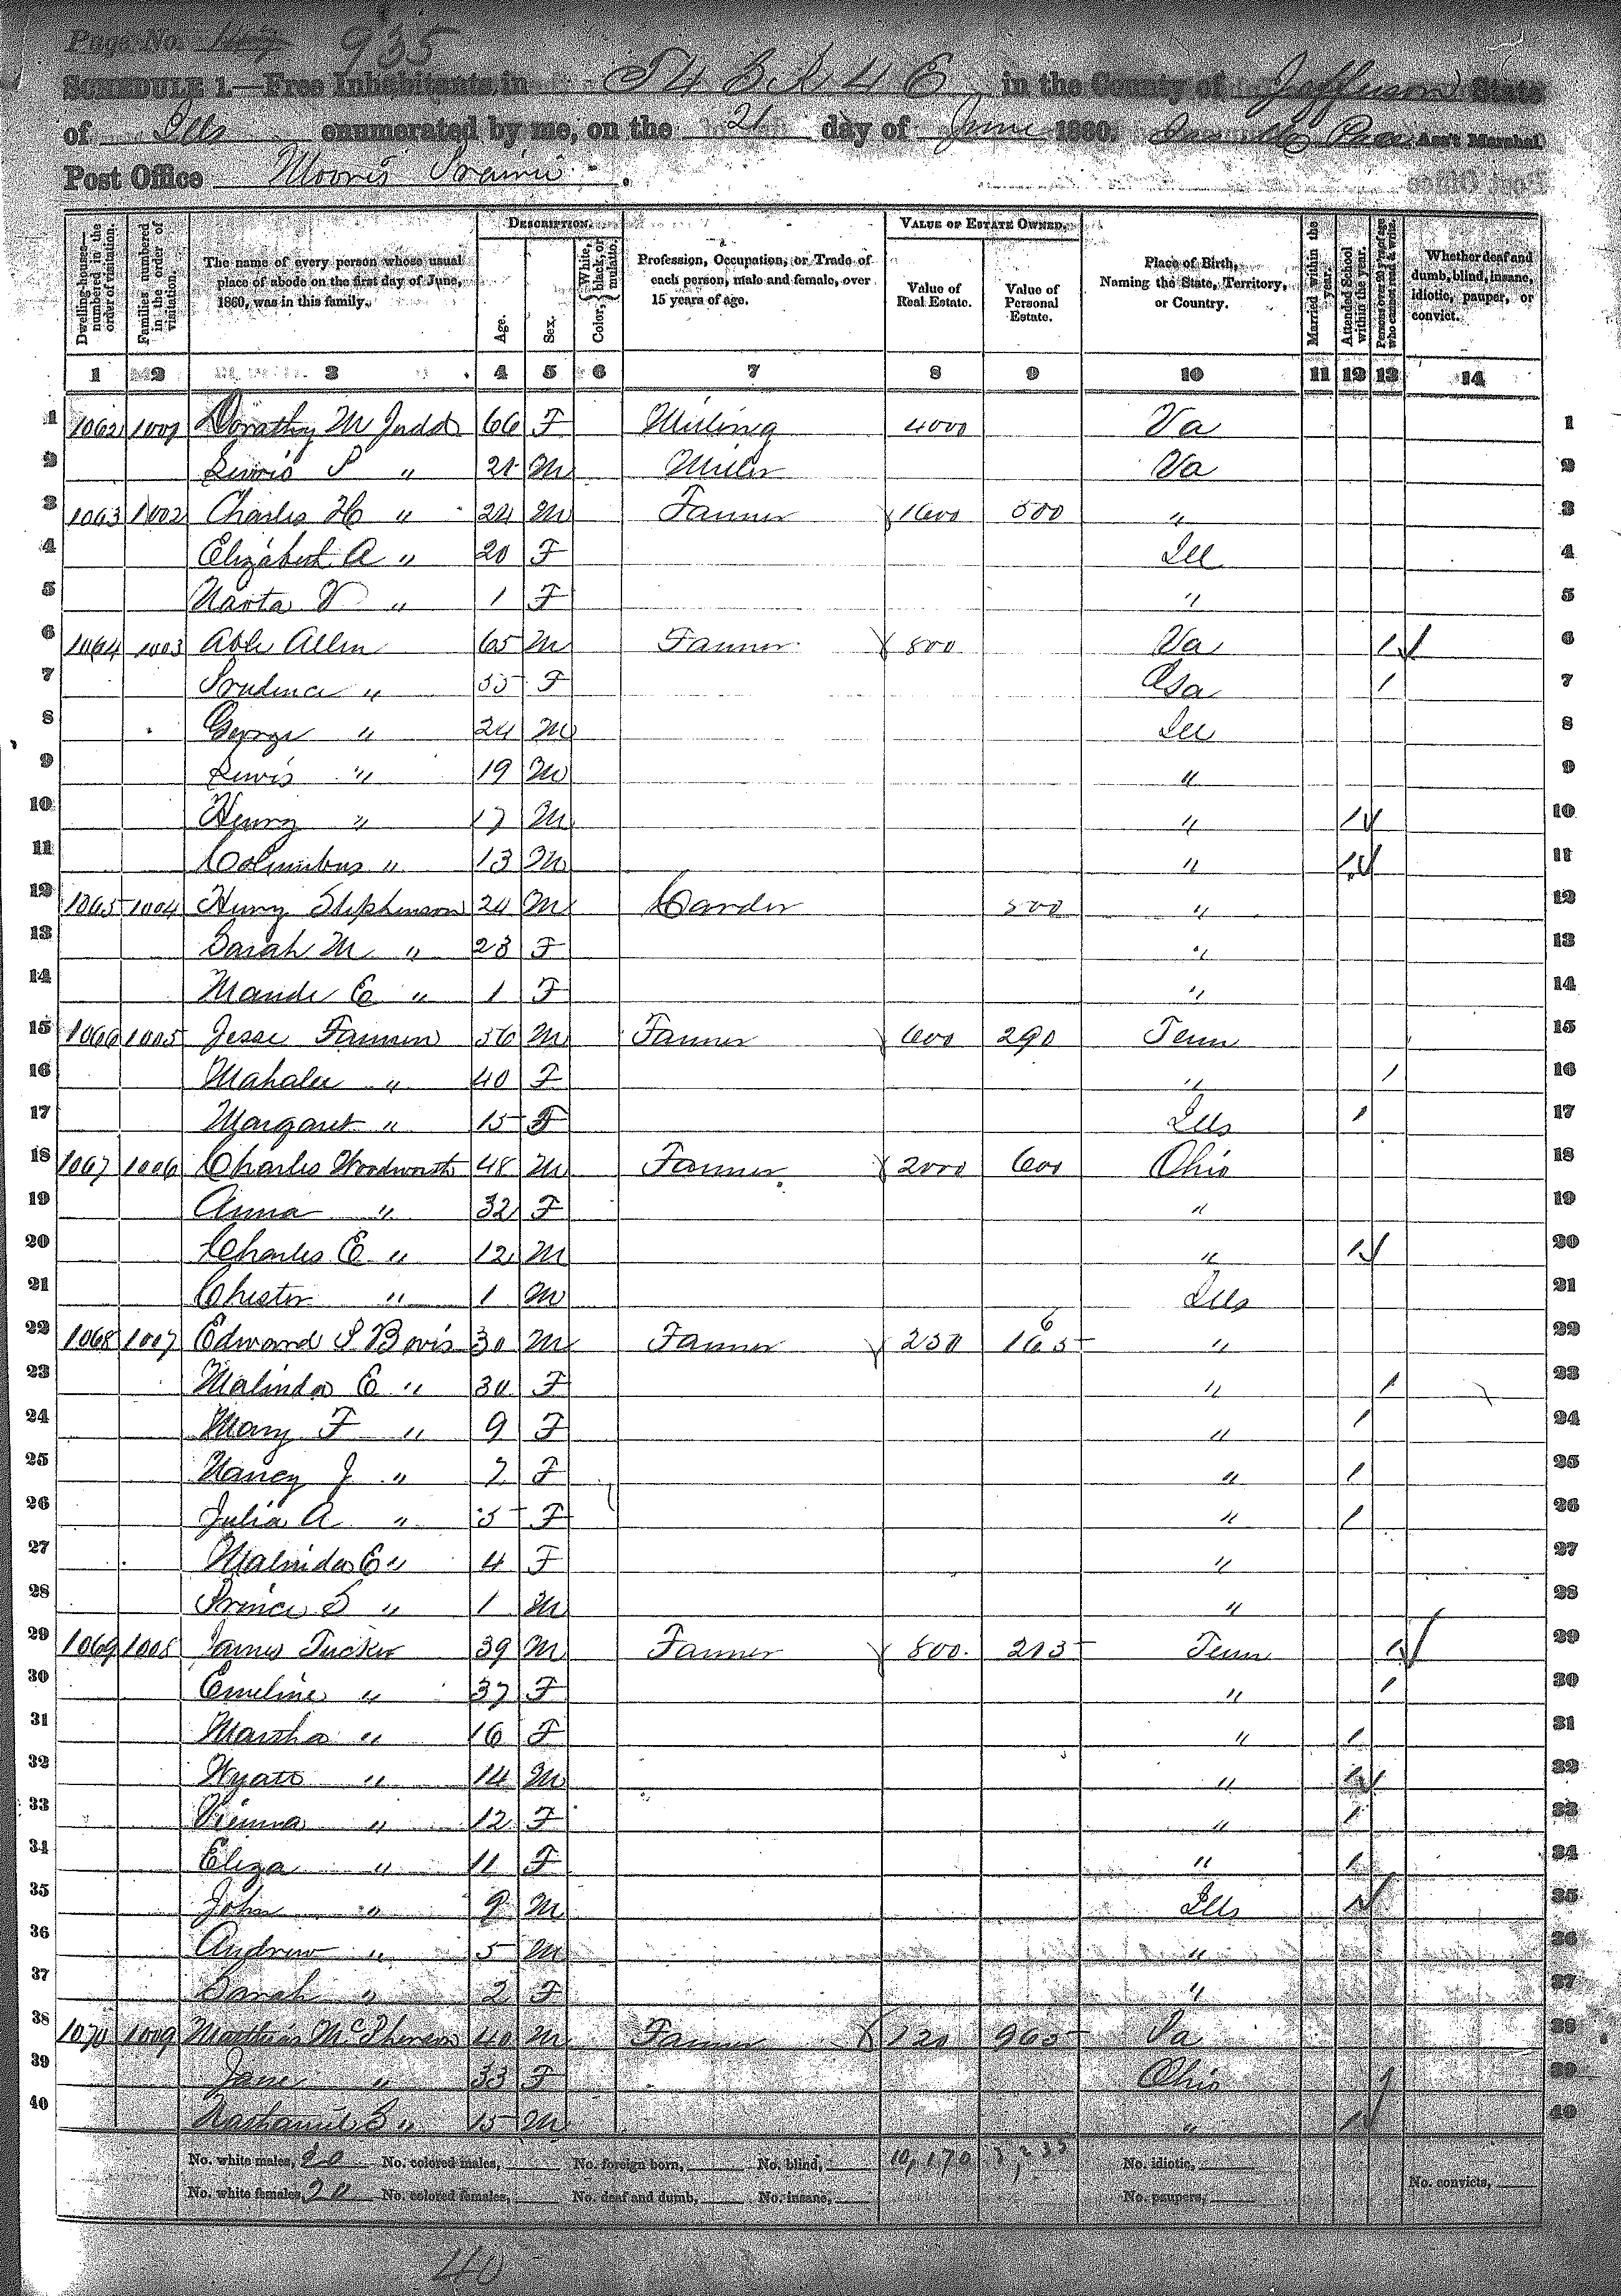 Page No. 935
SCHEDULE 1.—Free Inhabitants in T 4 S R 4 E in the County of Jefferson State
of Ills enumerated by me, on the 21 day of June 1860. Ass't Marshal
Post Office Moores Prairie.
Dwelling-houses—numbered in the order of visitation.
Families numbered in the order of visitation.
The name of every person whose usual place of abode on the first day of June, 1860, was in this family.
DESCRIPTION.
Age.
Sex.
Color, { White, black, or mulatto.
Profession, Occupation, or Trade of each person, male and female, over 15 years of age.
VALUE OF ESTATE OWNED.
Value of Real Estate.
Value of Personal Estate.
Place of Birth, Naming the State, Territory, or Country.
Married within the year.
Attended School within the year.
Persons over 20 y'rs of age who cannot read & write.
Whether deaf and dumb, blind, insane, idiotic, pauper, or convict.
1 2 3 4 5 6 7 8 9 10 11 12 13 14
1 1062 1001 Dorathy M Judd 66 F 4000 Va 1
2 Lewis P " 21 M Miller Va 2
3 1063 1002 Charles H " 24 M Farmer 1600 500 " 3
4 Elizabeth A " 20 F Ill 4
5 " 1 F " 5
6 1064 1003 Able Allen 65 M Farmer 800 Va 1 6
7 Prudence " 55 F 1 7
8 George " 24 M Ill 8
9 Lewis " 19 M " 9
10 Henry " 17 M " 1 10
11 Columbus " 13 M " 1 11
12 1065 1004 Henry Stephenson 24 M Carder 500 " 12
13 Sarah M " 23 F " 13
14 Maude E " 1 F " 14
15 1066 1005 Jesse 56 M Farmer 600 290 Tenn 15
16 Mahala " 40 F " 1 16
17 Margaret " 15 F Ills 1 17
18 1067 1006 Charles Woodworth 48 M Farmer 2000 600 Ohio 18
19 Anna " 32 F " 19
20 Charles E " 12 M " 1 20
21 Chester " 1 M Ills 21
22 1068 1007 Edward S 30 M Farmer 250 165 " 22
23 Malinda E " 30 F " 1 23
24 Mary F " 9 F " 1 24
25 Nancy J " 7 F " 1 25
26 Julia A " 5 F " 1 26
27 Malinda E " 4 F " 27
28 Prince S " 1 M " 28
29 1069 1008 James Tucker 39 M Farmer 800 213 Tenn 1 29
30 Emeline " 37 F " 1 30
31 Martha " 16 F " 1 31
32 Wyatt " 14 M " 1 32
33 Vienna " 12 F " 1 33
34 Eliza " 11 F " 1 34
35 John " 9 M Ills 1 35
36 Andrew " 5 M " 36
37 Sarah " 2 F " 37
38 1070 1009 Matthias McPherson 40 M Farmer 120 965 Pa 38
39 Jane " 33 F Ohio 1 39
40 Nathaniel S " 15 M " 1 40
No. white males, 20 No. colored males, No. foreign born, No. blind, 10,170 No. idiotic,
No. white females, 20 No. colored females, No. deaf and dumb, No. insane, No. paupers, No. convicts,
40